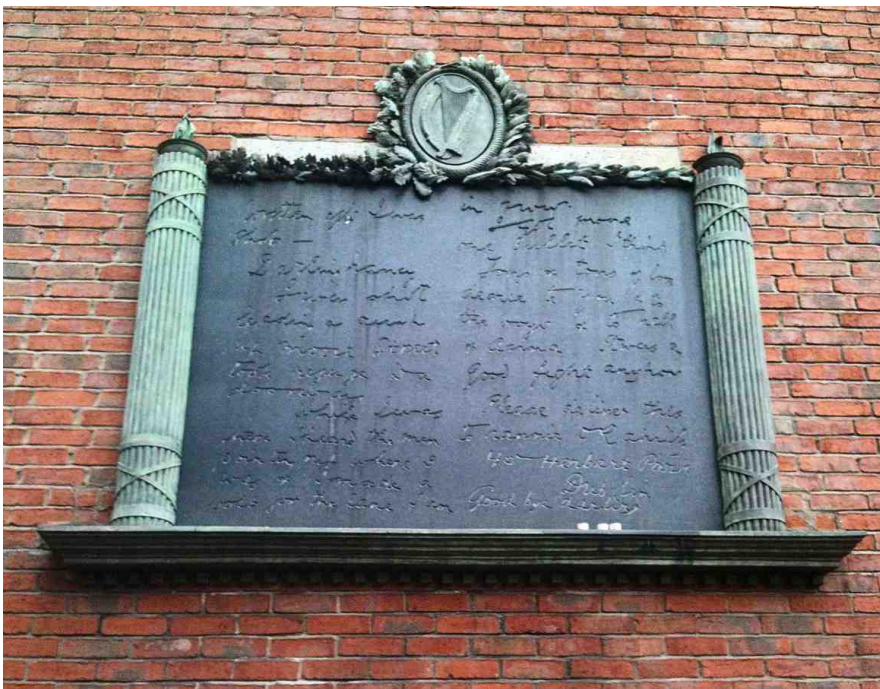 Written after I was
shot —
Darling Nancy
I was shot
leading a rush
up Moore Street
took refuge in a
doorway
While I was
there I heard the men
pointing out where I
was & I made a
bolt for the lane I am
in now
I got more
one bullet I think
Tons & tons of love
dearie to you & to
the boys & to Nell
& Anna It was a
Good fight anyhow
Please deliver this
to Nannie O'Rahilly
40 Herbert Park
Dublin
Good bye Darling